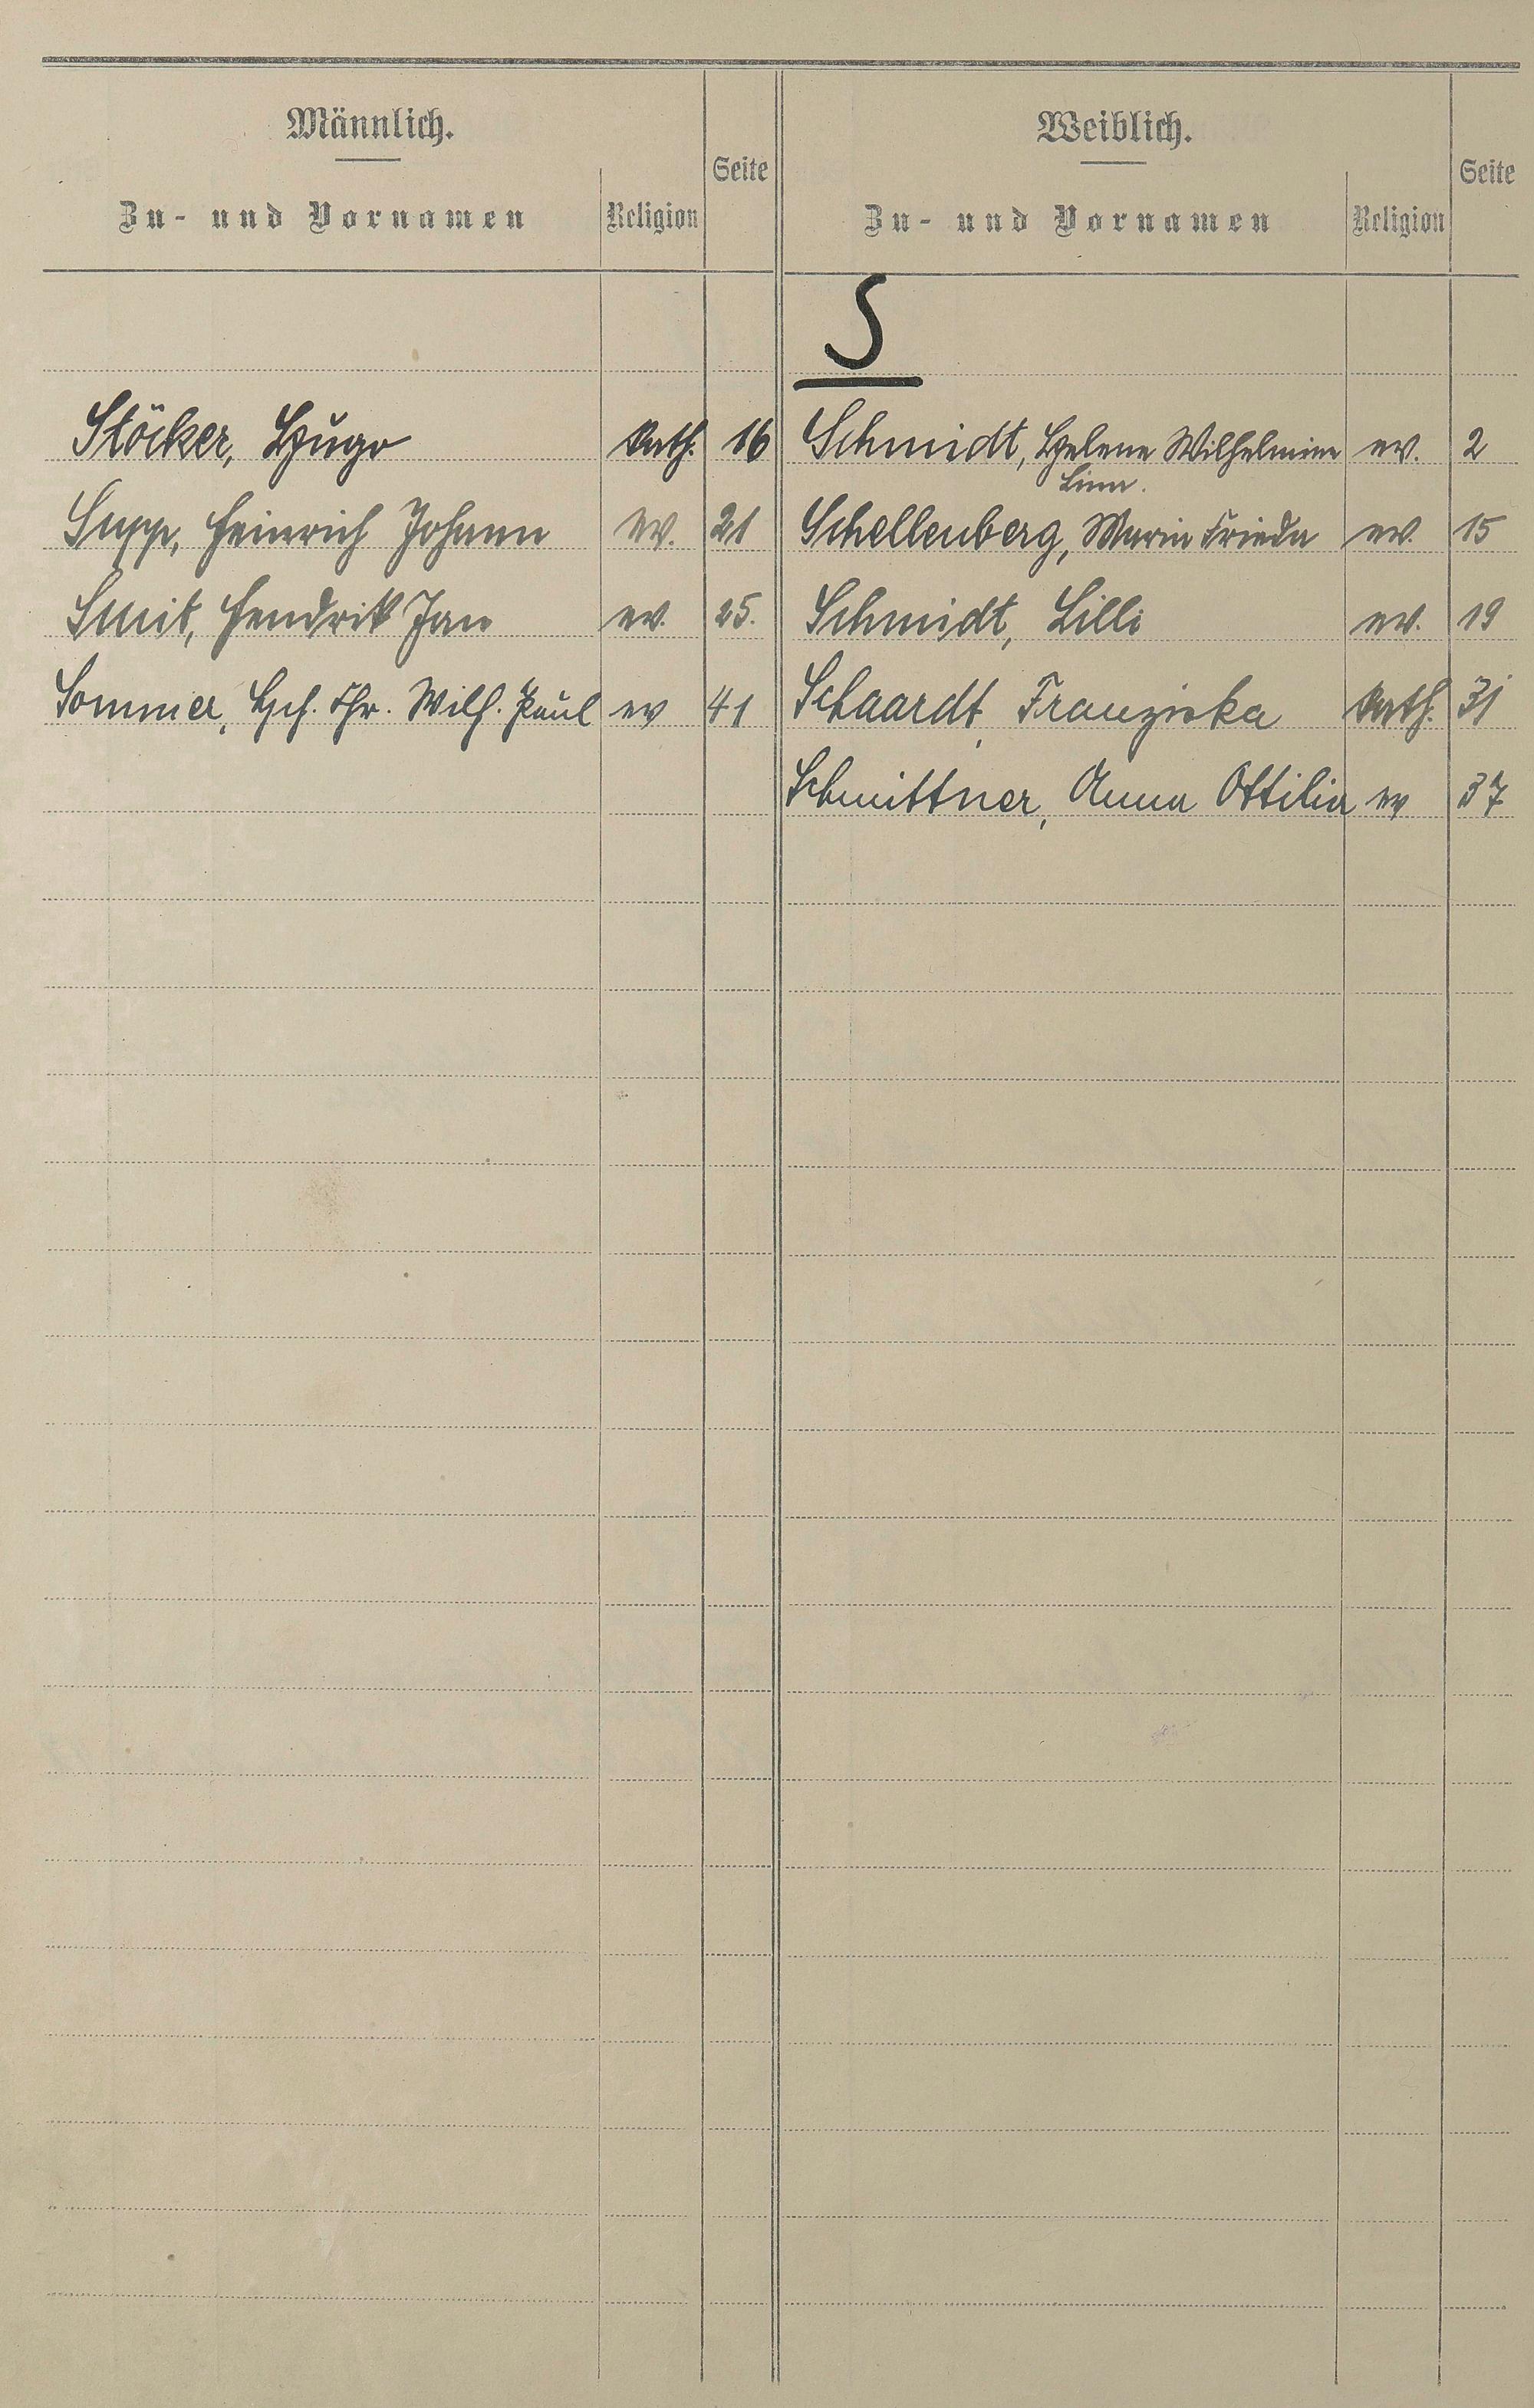 Männlich.
Zu- und Vornamen Religion Seite
Weiblich.
Zu- und Vornamen Religion Seite
S
Stöcker, Hugo Kath. 16
Supp, Heinrich Johann ev. 21
Smit, Hendrik Jan ev. 25.
Sommer, Hch. Chr. Wilh. Paul ev 41
Schmidt, Helene Wilhelmine ev. 2
Lina.
Schellenberg, Maria Frieda ev. 15
Schmidt, Lilli ev. 19
Schaardt, Franziska Kath. 31
Schmittner, Anna Ottilia ev 37